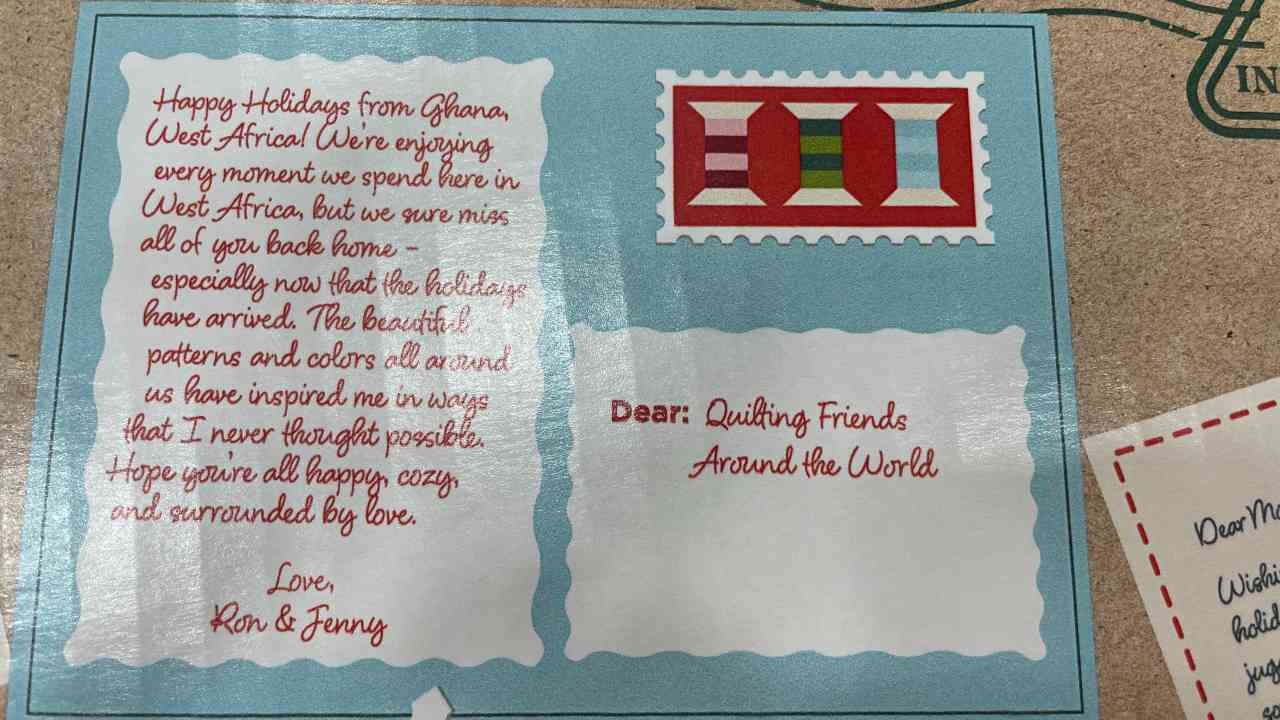 Happy Holidays from Ghana,
West Africa! We're enjoying
every moment we spend here in
West Africa, but we sure miss
all of you back home -
especially now that the holidays
have arrived. The beautiful
patterns and colors all around
us have inspired me in ways
that I never thought possible.
Hope you're all happy, cozy,
and surrounded by love.
Love,
Ron & Jenny
Dear: Quilting Friends
Around the World
IN
Dear